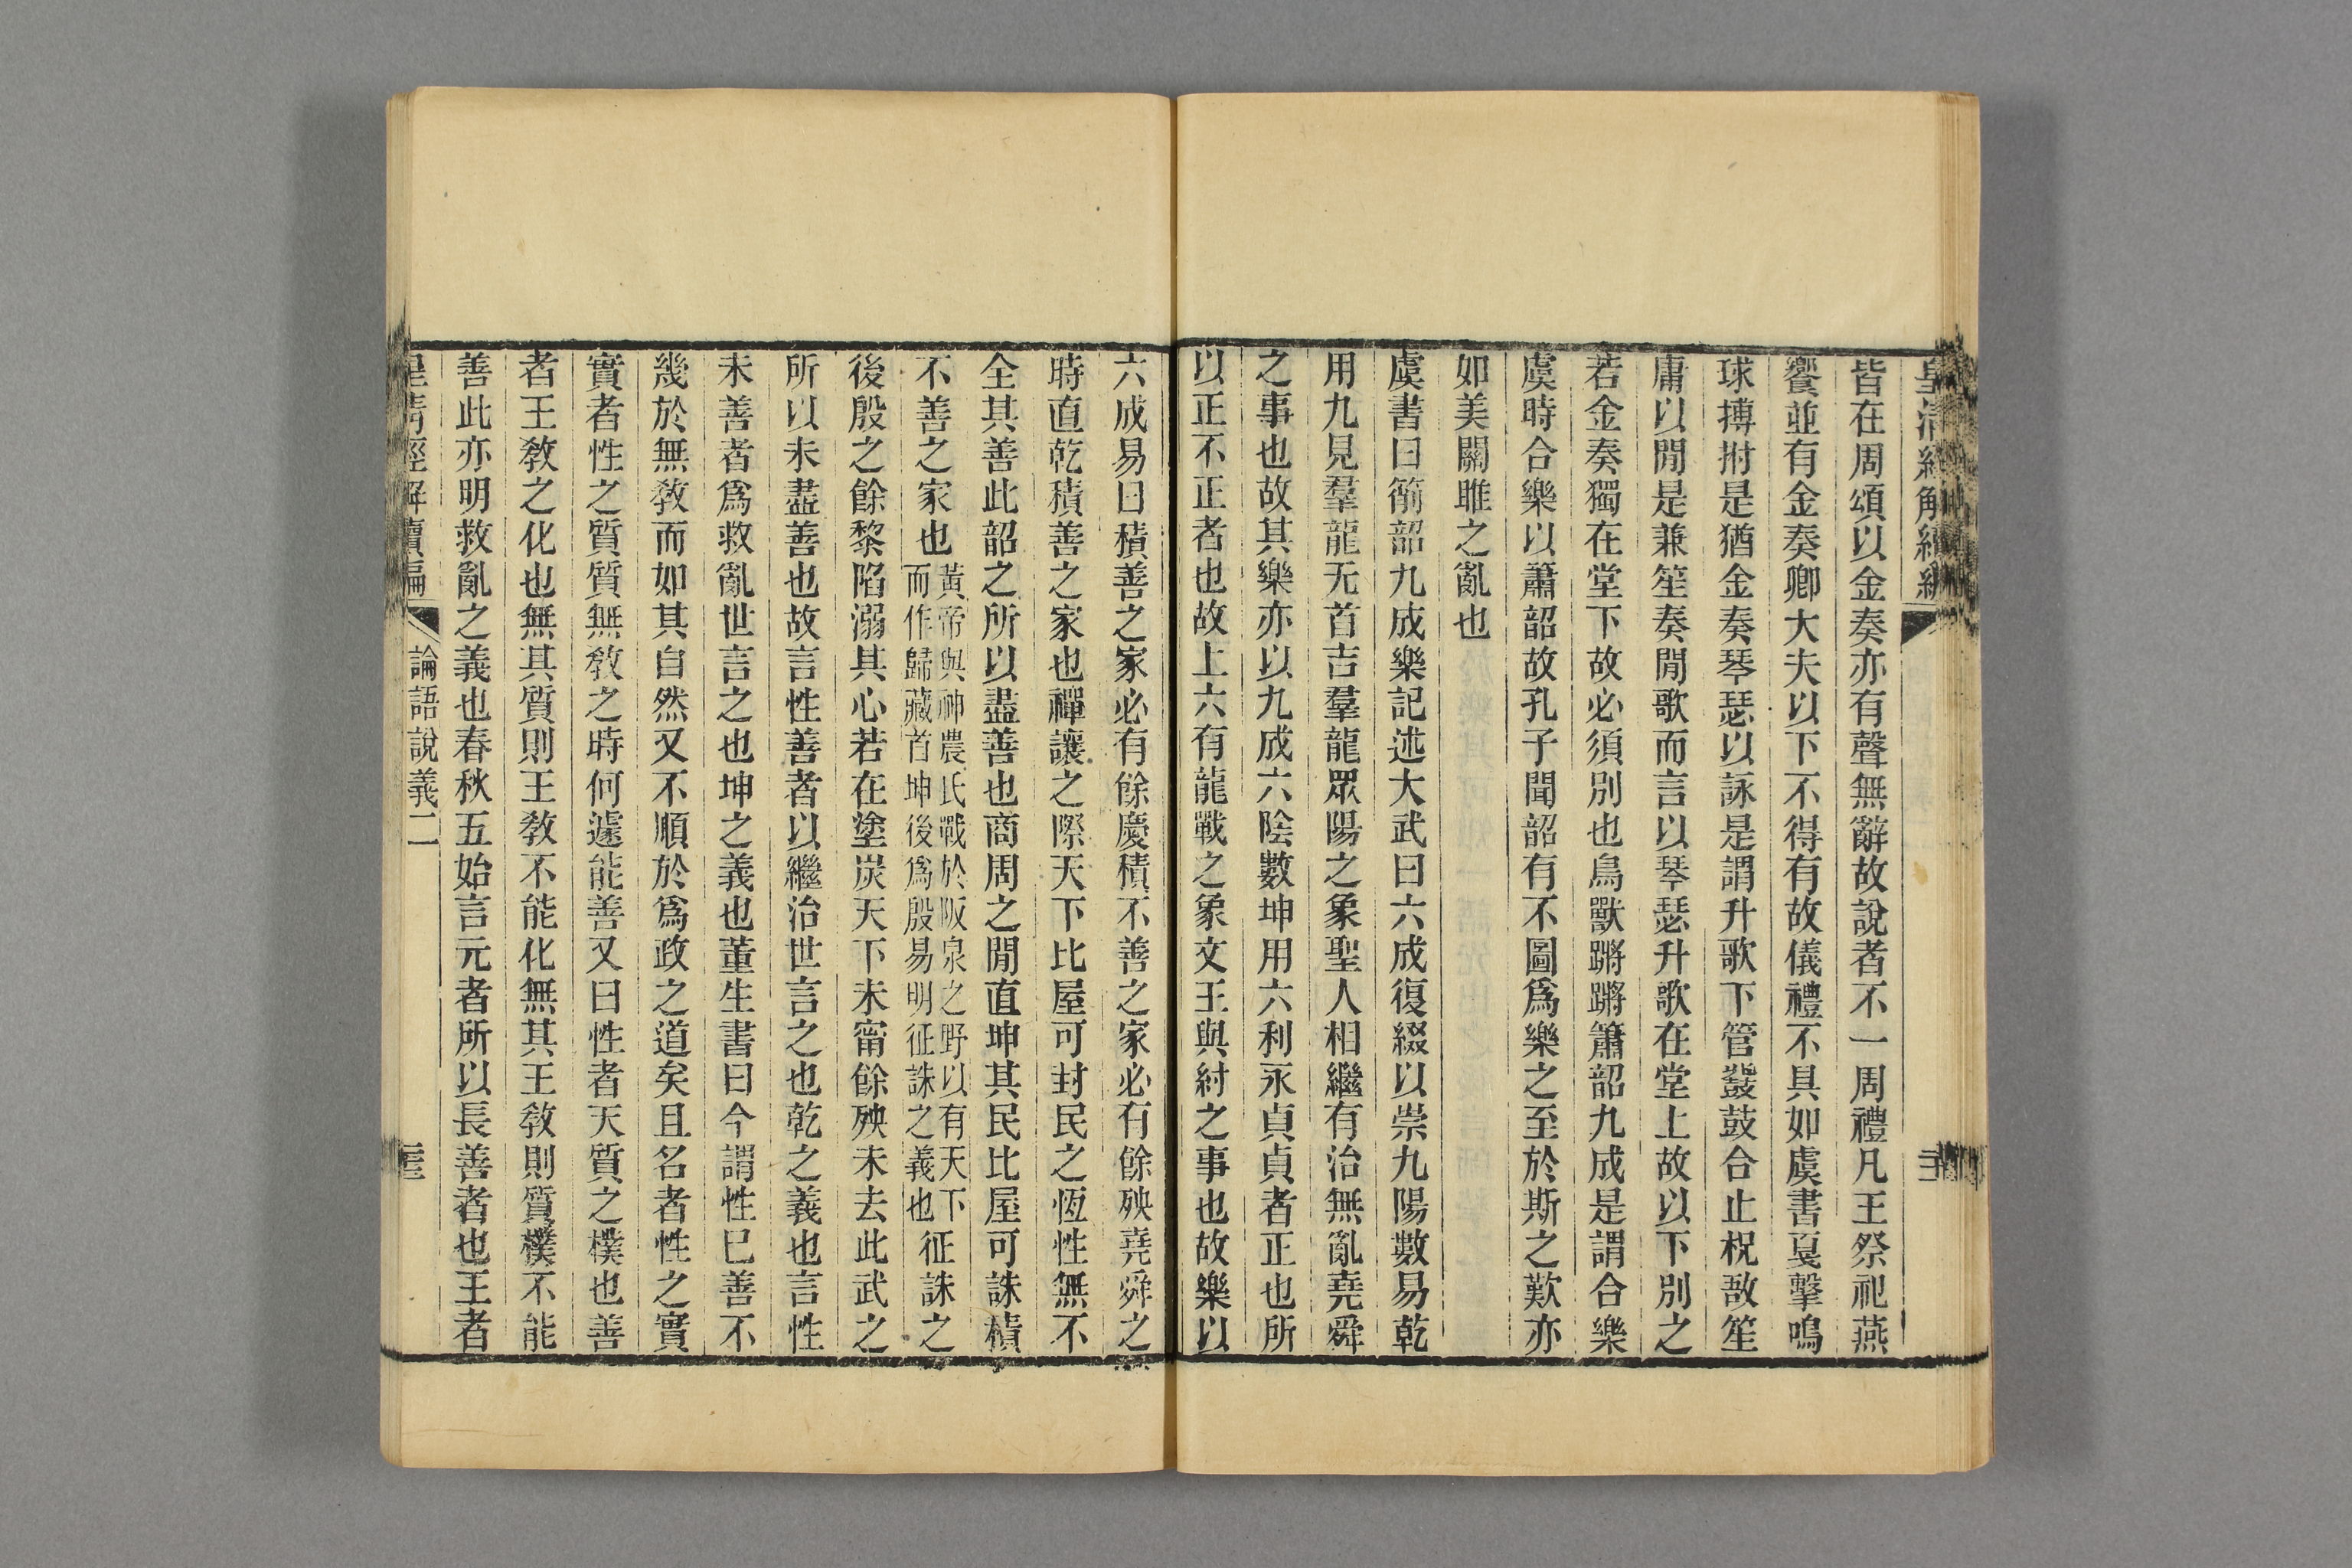 皇清經解續編
皆在周頌以金奏亦有聲無辭故說者不一周禮凡王祭祀燕
饗並有金奏卿大夫以下不得有故儀禮不具如虞書戛擊鳴
球搏拊是猶金奏琴瑟以詠是謂升歌下管鼗鼓合止柷敔笙
庸以閒是兼笙奏閒歌而言以琴瑟升歌在堂上故以下別之
若金奏獨在堂下故必須別也鳥獸蹌蹌簫韶九成是謂合樂
虞時合樂以簫韶故孔子聞韶有不圖爲樂之至於斯之歎亦
如美關雎之亂也
虞書曰簫韶九成樂記述大武曰六成復綴以崇九陽數易乾
用九見羣龍无首吉羣龍眾陽之象聖人相繼有治無亂堯舜
之事也故其樂亦以九成六陰數坤用六利永貞貞者正也所
以正不正者也故上六有龍戰之象文王與紂之事也故樂以
六成易曰積善之家必有餘慶積不善之家必有餘殃堯舜之
時直乾積善之家也禪讓之際天下比屋可封民之恆性無不
全其善此韶之所以盡善也商周之閒直坤其民比屋可誅積
不善之家也黃帝與神農氏戰於阪泉之野以有天下而作歸藏首坤後爲殷易明征誅之義也征誅之
後殷之餘黎陷溺其心若在塗炭天下未甯餘殃未去此武之
所以未盡善也故言性善者以繼治世言之也乾之義也言性
未善者爲救亂世言之也坤之義也董生書曰今謂性巳善不
幾於無教而如其自然又不順於爲政之道矣且名者性之實
實者性之質質無教之時何遽能善又曰性者天質之樸也善
者王教之化也無其質則王教不能化無其王教則質樸不能
善此亦明救亂之義也春秋五始言元者所以長善者也王者
皇清經解續編
論語說義二